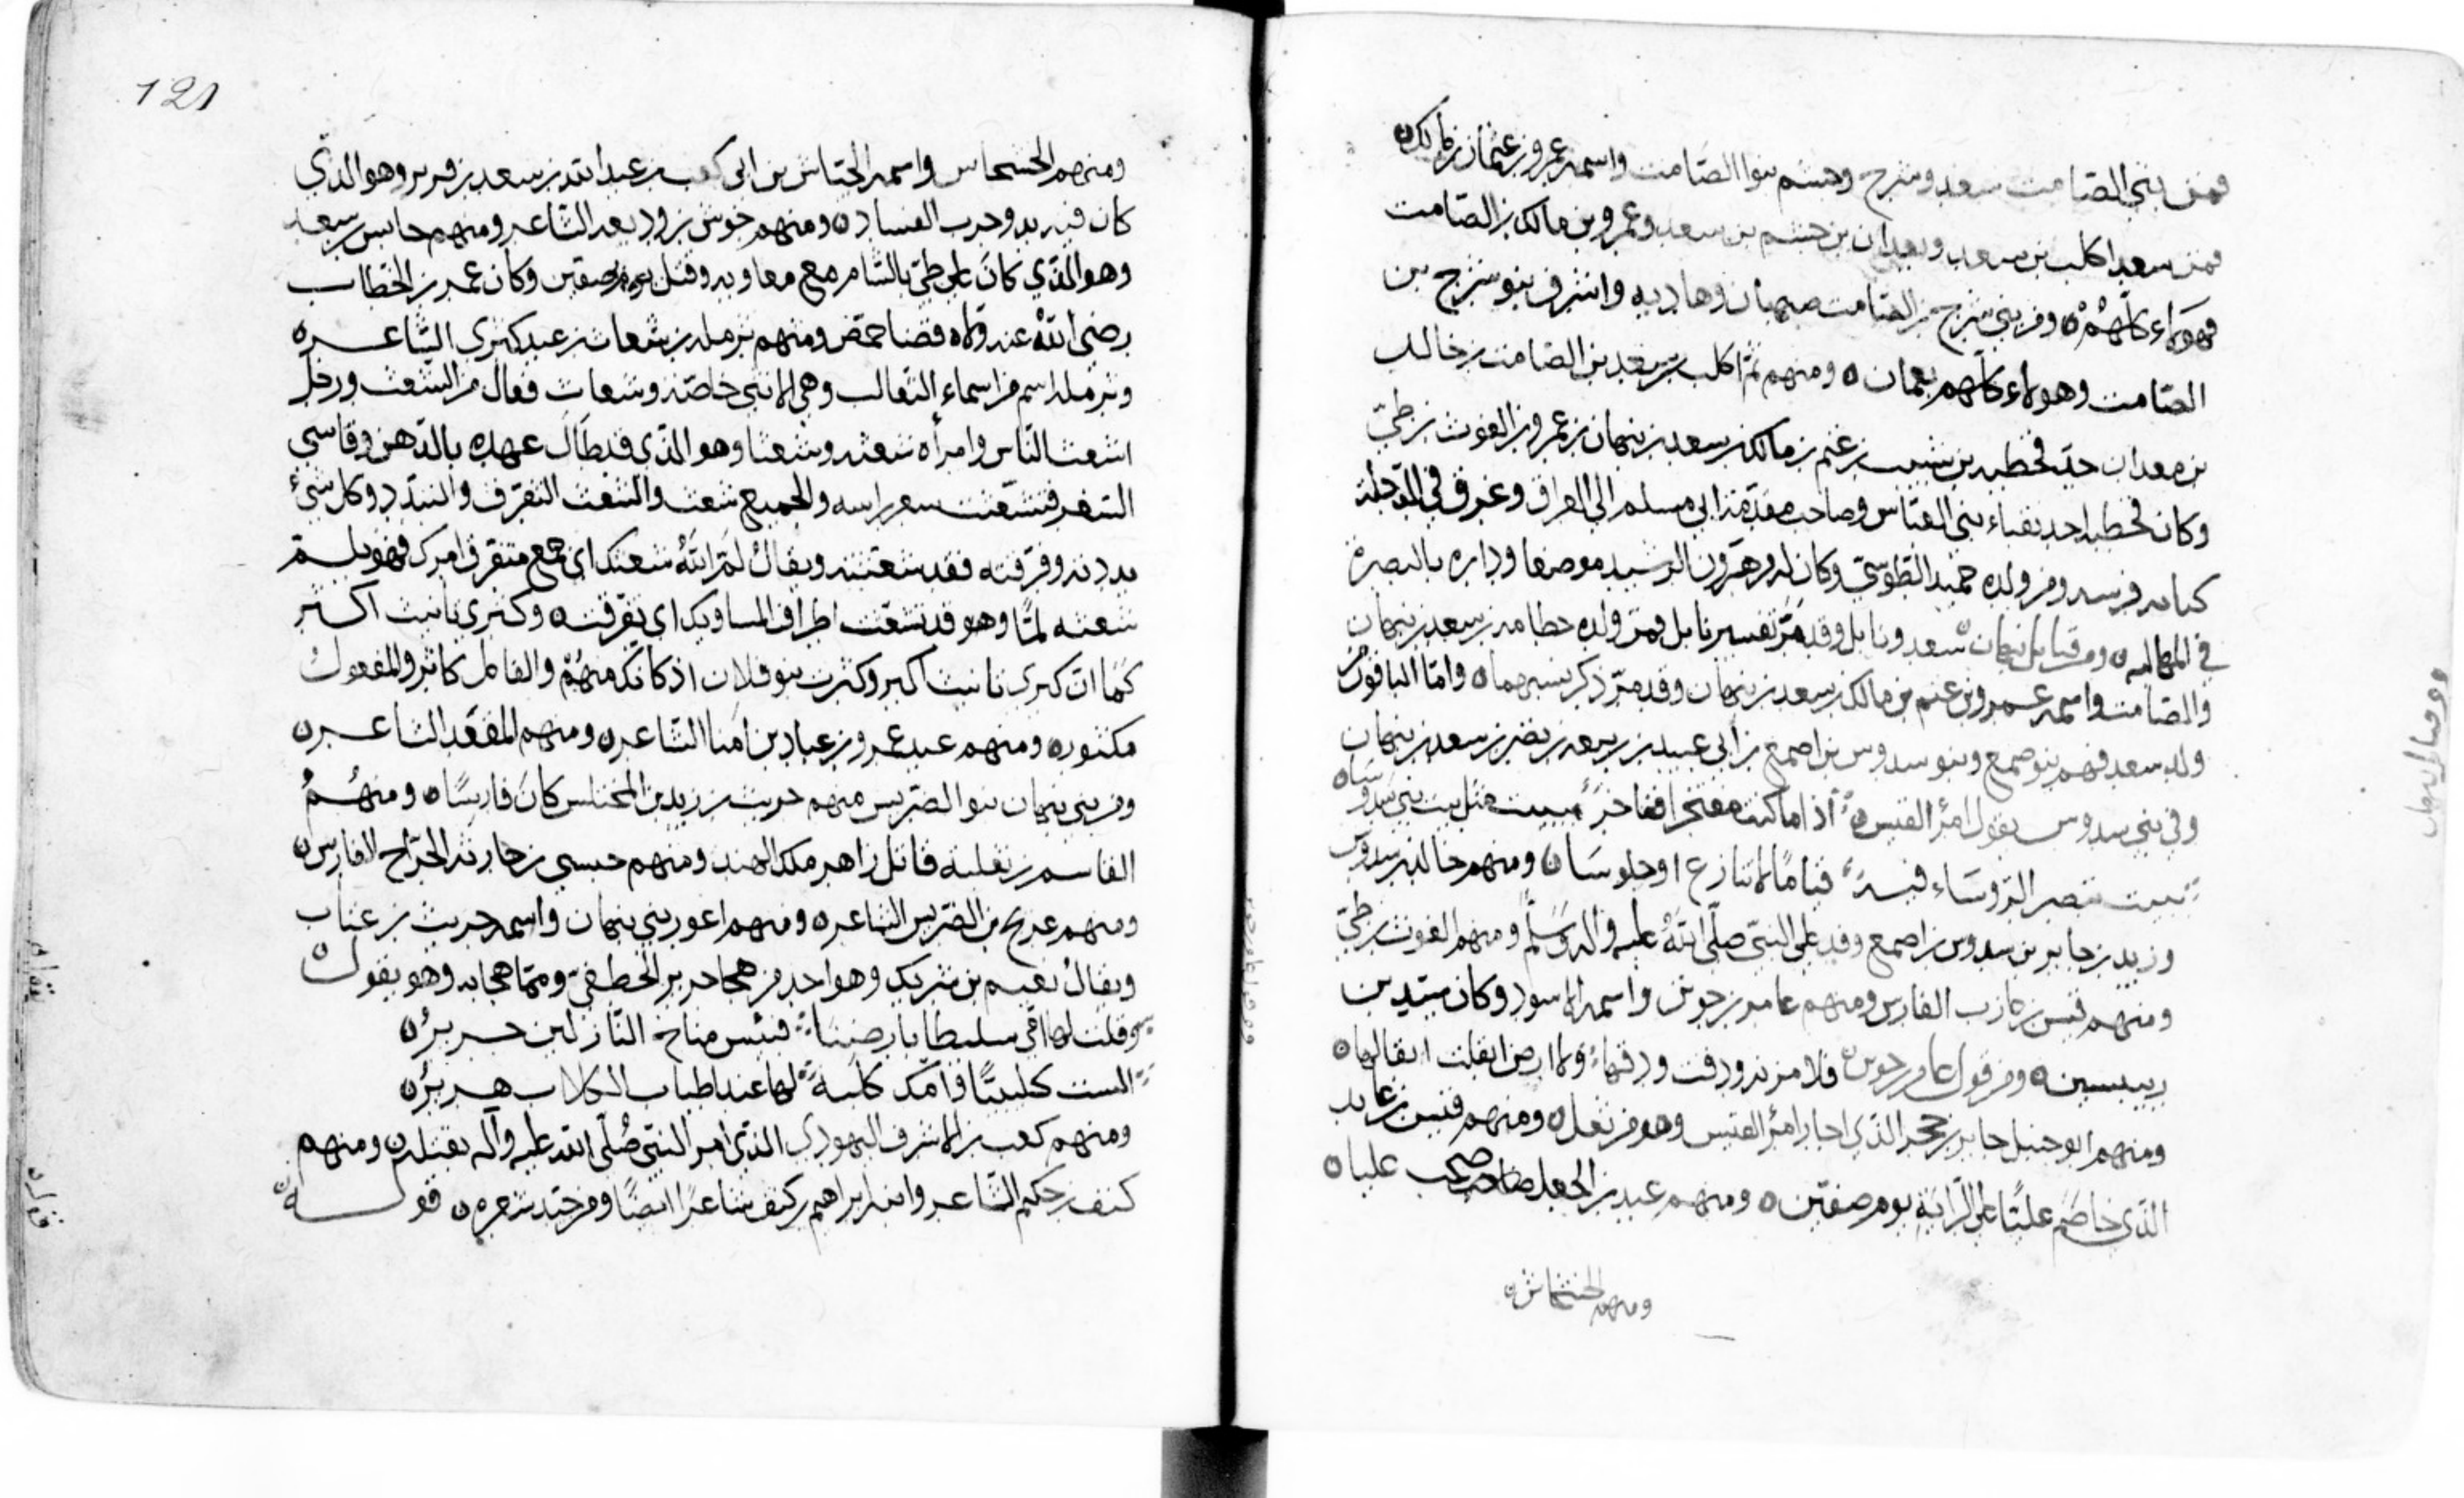 فمن بني الصامت سعد وشرح وهشم بنوا الصامت واسمه عمرو بن عثمان بن مالك ٥
فمن سعد اكلب بن سعد ومعدان بن جشم بن سعد وعمرو بن مالك بن الصامت
فهولاء كلهم ٥ ومن بني شرح بن الصامت صهبان وهاديه واشرف بنو شرح بن
الصامت وهولاء كلهم بعمان ٥ ومنهم ثم اكلب بن سعد بن الصامت بن خالد
بن معدان جد قحطبه بن شبيب بن غنم بن مالك بن سعد بن نبهان بن عمرو بن الغوث بن طيّ
وكان قحطبه احد نقباء بني العبّاس وصاحب مقدّمة ابي مسلم الى العراق وغرق في الدجلة
كبابه فرسه ومن ولده حميد الطوسيّ وكان لد وهرون الرشيد موضعا وداره بالبصرة
في المهالبه ٥ ومن قبايل نبهان سعد ونابل وقد مرّ تفسير نابل فمن ولده حطامه بن سعد بن نبهان
والصامت واسمه عمرو بن غنم بن مالك بن سعد بن نبهان وقد مرّ ذكر نسبهما ٥ وامّا الباقون من
ولد سعد فهم بنو اصمع وبنو سدوس بن اصمع بن ابي عبيد بن ربيعه بن نضر بن سعد بن نبهان
وفي بني سدوس يقول امرؤ القيس ٥ اذا ما كنت مفتخرا ففاخر ببيت مثل بيت بني سدوسا ٥
ببيت تنصر الرؤساء فيه قياما لا تنازع او جلوسا ٥ ومنهم خالد بن سدوس
وزيد بن جابر بن سدوس بن اصمع وفد على النبيّ صلّى اللّه عليه واله وسلّم ومنهم الغوث بن طيّ
ومنهم قيس بن عازب الفارس ومنهم عامر بن جوين واسمه الاسود وكان سيّد بن
رييسين ٥ ومن قول عامر بن جوين فلا مزنه ودقت ودقها ولا ارض ابقلت ابقالها ٥
ومنهم ابو حنبل جابر بن حجر الذي اجار امرؤ القيس وهو من ثعل ٥ ومنهم قيس بن عايد
الذي خاصم عليّا على الرّاية يوم صفّين ٥ ومنهم عبيد بن الجعد صاحب عليا ٥
ومنهم الخشخاش ٥
121
ومنهم الخشخاش واسمه الخشاش بن ابي كعب بن عبد الله بن سعد بن فرير وهو الذي
كان فيه بدو حرب الفساد ٥ ومنهم جوش بن وديعه الشاعر ومنهم حابس بن سعد
وهو الذي كان على طيّ بالشام مع معاويه وقتل يوم صفّين وكان عمر بن الخطاب
رضي اللّه عنه ولاه قضا حمص ومنهم ثرمله بن شعاث بن عبد كثرى الشاعر ٥
وثرمله اسم من اسماء الثعالب وهي الانثى خاصّة وشعاث فعال من الشعث ورجل
اشعث الناس وامراه شعثه وشعثا وهو الذي قد طال عهده بالدّهن وقاسى
السّفر فتشعّث شعر راسه والجميع شعث والشعث التفرّق والتبدّد وكل شيء
بددته وفرقته فقد شعثته ويقال لمّ الله شعثك اي جمع متفرق امرك فهو يلمّ
شعثه لمّا وهو قد تشعث اطراف المساويك اي تفرقت ٥ وكثرى تانيث اكثر
كما ان كبرى تانيث اكبر وكثرت بنو فلان اذ كانك منهم والفاعل كاثر والمفعول
مكثور ٥ ومنهم عبد عمرو بن عباد بن امنا الشاعر ٥ ومنهم المقعد الشاعر ٥
ومن بني نبهان بنو الضريس منهم حريث بن زيد بن المختلس كان فارسًا ٥ ومنهم
القاسم بن ثعلبه قاتل زاهر ملك الهند ومنهم حبسي بن حارثه الجرّاح الفارس ٥
ومنهم عريج بن الضريس الشاعر ٥ ومنهم اعور بني نبهان واسمه حريث بن عناب
ويقال نعيم بن شريك وهو احد من هجا جرير بن الخطفيّ وممّا هجا به وهو يقول ٥
وقلت لها اقي سليطا بارضنا فبئس مناخ النازلين جرير ٥
الست كليبيّا وامّك كلبة لها عند اطناب الكلاب هرير ٥
ومنهم كعب بن الاشرف اليهودي الذي امر النبيّ صلّى الله عليه وآله بقتله ٥ ومنهم
كنف بن حكيم الشاعر وابنه ابراهيم بن كنف شاعرًا ايضًا ومن جيّد شعره ٥ قوله ٥